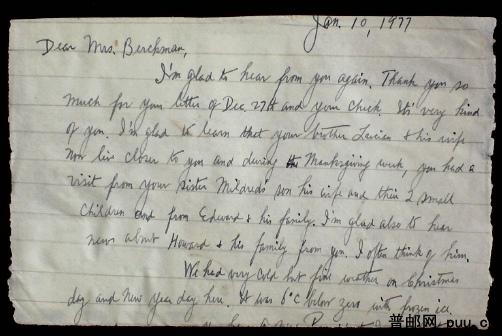 Jan. 10, 1977
Dear Mrs. Berchman,
I'm glad to hear from you again. Thank you so
much for your letter of Dec. 27th and your check. It's very kind
of you. I'm glad to learn that your brother Lucian & his wife
now live closer to you and during the Thanksgiving week, you had a
visit from your sister Mildred's son his wife and their 2 small
children and from Edward & his family. I'm glad also to hear
news about Howard & his family from you. I often think of him.
We had very cold but fine weather on Christmas
day and New Year day here. It was 8°C below zero with frozen ice
普邮网 puu.c